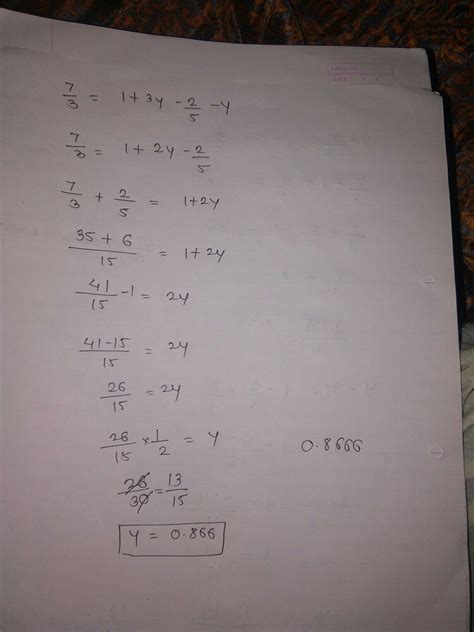 PAGE NO.
DATE
7/3 = 1 + 3y - 2/5 - y
7/3 = 1 + 2y - 2/5
7/3 + 2/5 = 1+2y
(35 + 6)/15 = 1 + 2y
41/15 - 1 = 2y
(41-15)/15 = 2y
26/15 = 2y
26/15 × 1/2 = y
0.8666
26/30 = 13/15
y = 0.866